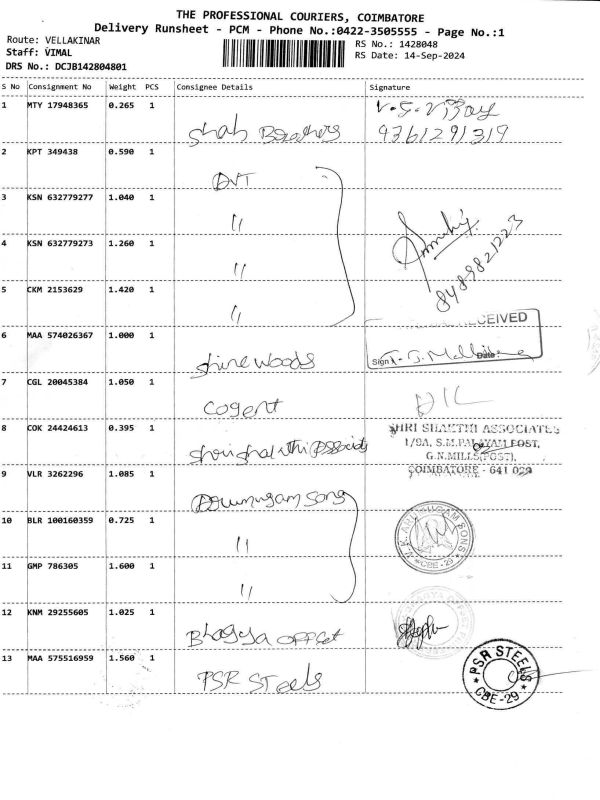 THE PROFESSIONAL COURIERS, COIMBATORE
Delivery Runsheet - PCM - Phone No.:0422-3505555 - Page No.:1
Route: VELLAKINAR
RS No.: 1428048
Staff: VIMAL
RS Date: 14-Sep-2024
DRS No.: DCJB142804801
S No Consignment No Weight PCS Consignee Details Signature
1 MTY 17948365 0.265 1 Shah Brothers V.S.Vijay
9361291319
2 KPT 349438 0.590 1 AVT
3 KSN 632779277 1.040 1 "
4 KSN 632779273 1.260 1 " 8489821223
5 CKM 2153629 1.420 1 "
RECEIVED
6 MAA 574026367 1.000 1 Shine woods Sign Date
7 CGL 20045384 1.050 1 Cogent
8 COK 24424613 0.395 1 SHRI SHAKTHI ASSOCIATES
1/9A, S.M.PALAYAM POST,
G.N.MILLS(POST),
COIMBATORE - 641 029
9 VLR 3262296 1.085 1 Arumugam Song
10 BLR 100160359 0.725 1 "
ARUMUGAM SONS
CBE-29
11 GMP 786305 1.600 1 "
12 KNM 29255605 1.025 1 Bhagya OFFSet
13 MAA 575516959 1.560 1 PSR STeels
PSR STEELS
CBE-29